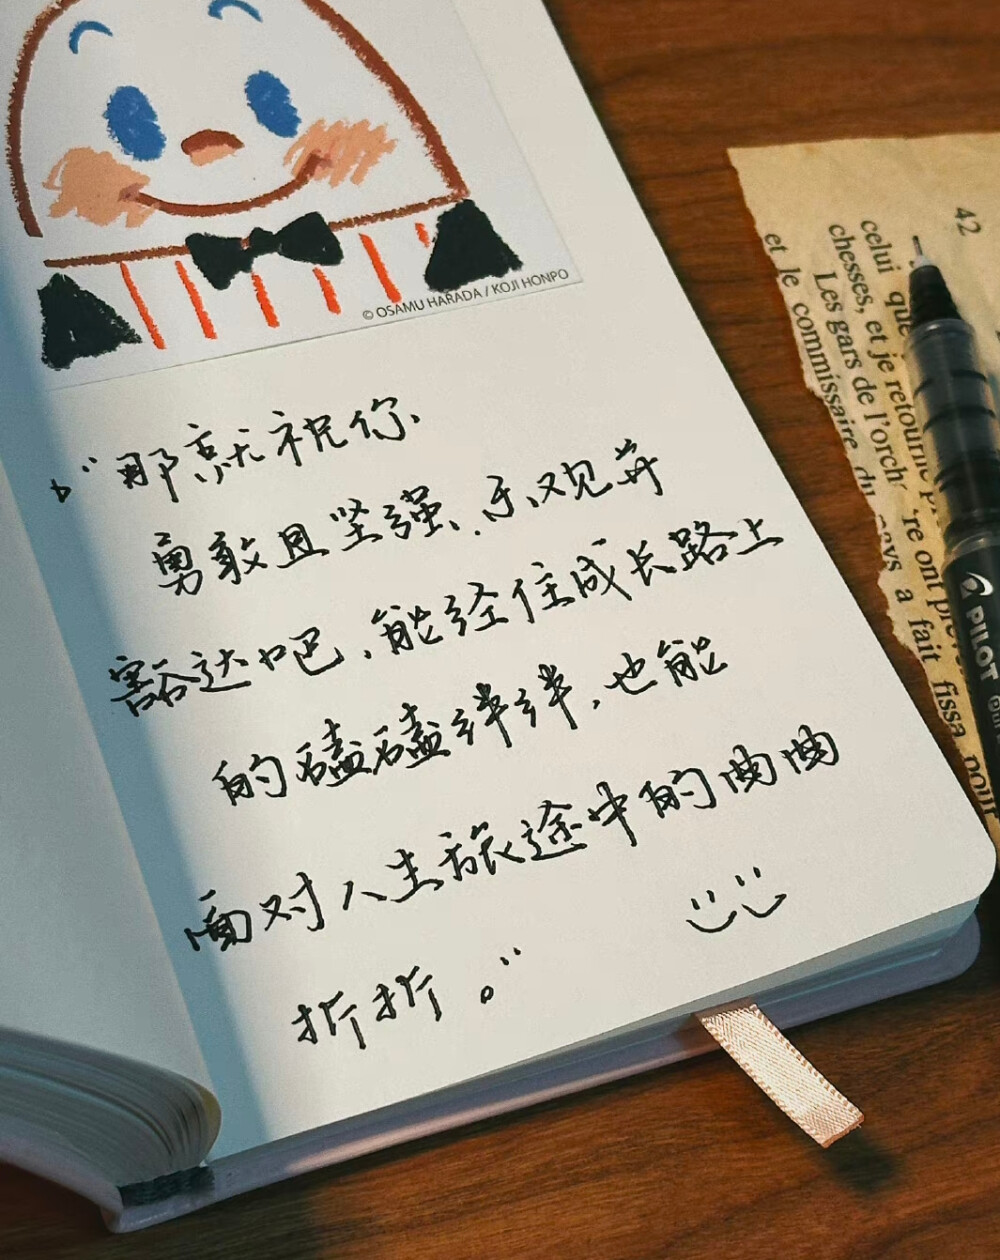 © OSAMU HARADA / KOJI HONPO
“那就祝你、
勇敢且坚强、乐观并
豁达吧,能经住成长路上
的磕磕绊绊,也能
面对人生旅途中的曲曲
折折。”
42
celui que
chesses, et je retourne
Les gars de l'orch
et le commissaire du
're ont
pays a fait fissa pour
PILOT